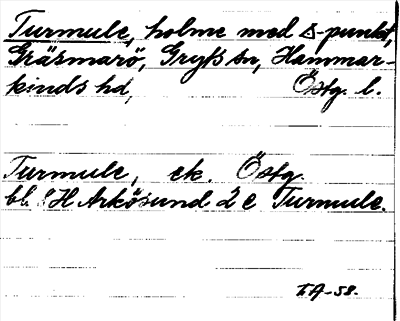 Turmule, holme med Δ-punkt,
Gräsmarö, Gryts sn, Hammar-
kinds hd, Östg. l.
Turmule, ek. Östg.
bl. 8H Arkösund 2 e Turmule.
EA-58.